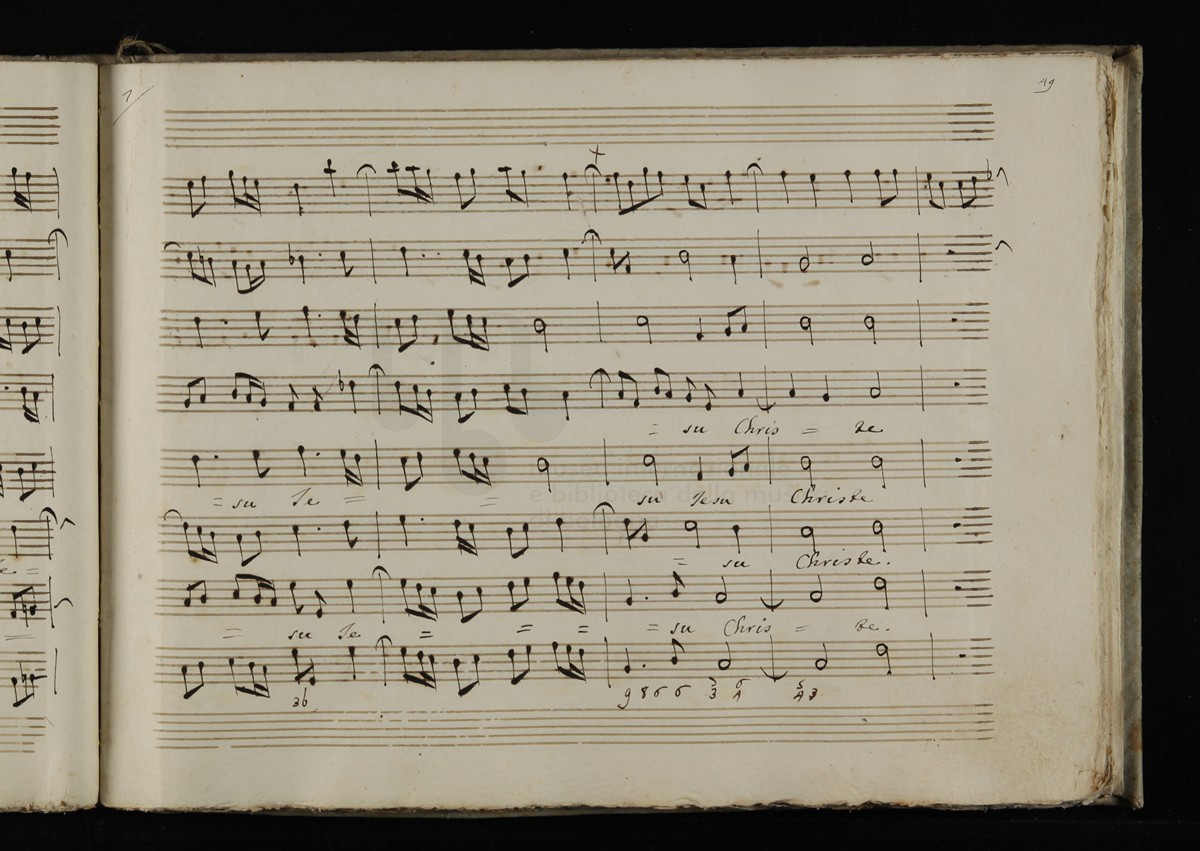 7 49
= su Chris = te
= su Je = = su Jesu Christe
= su Christe.
= su Je = = = = su Chris = te.
3b 9 8 6 6